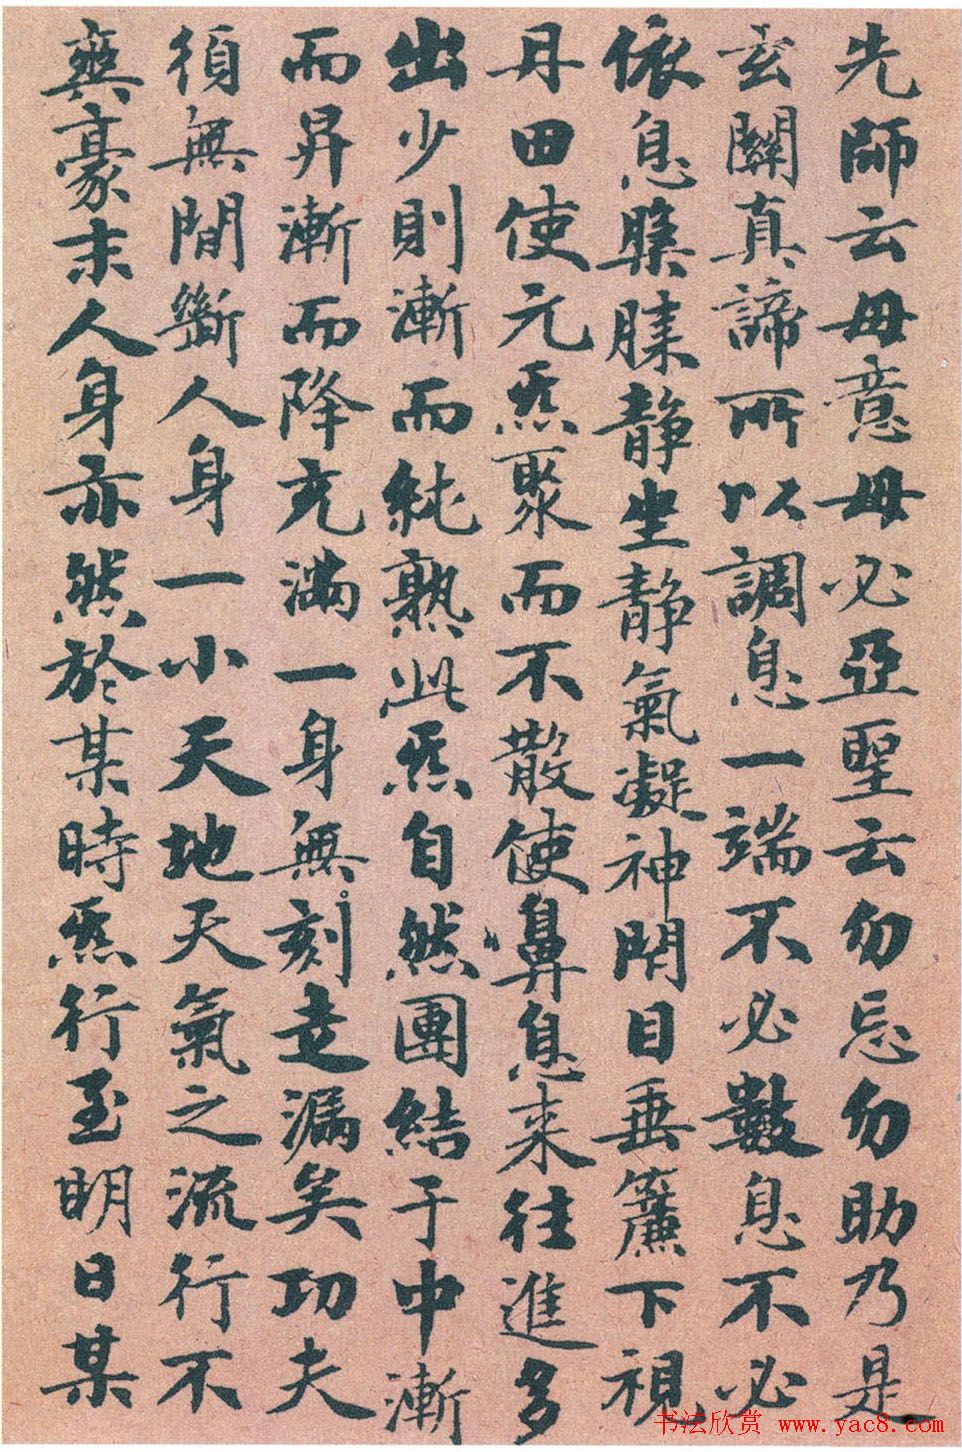 先師云毋意毋必亞聖云勿忘勿助乃是
玄關真諦所以調息一端不必數息不必
依息集膝静坐静氣凝神閉目垂簾下視
丹田使元炁聚而不散使鼻息來往進多
出少則漸而純熟此炁自然團結于中漸
而昇漸而降充滿一身無刻走漏矣功夫
須無間斷人身一小天地天氣之流行不
爽豪末人身亦然於某時炁行至明日某
书法欣赏 www.yac8.com